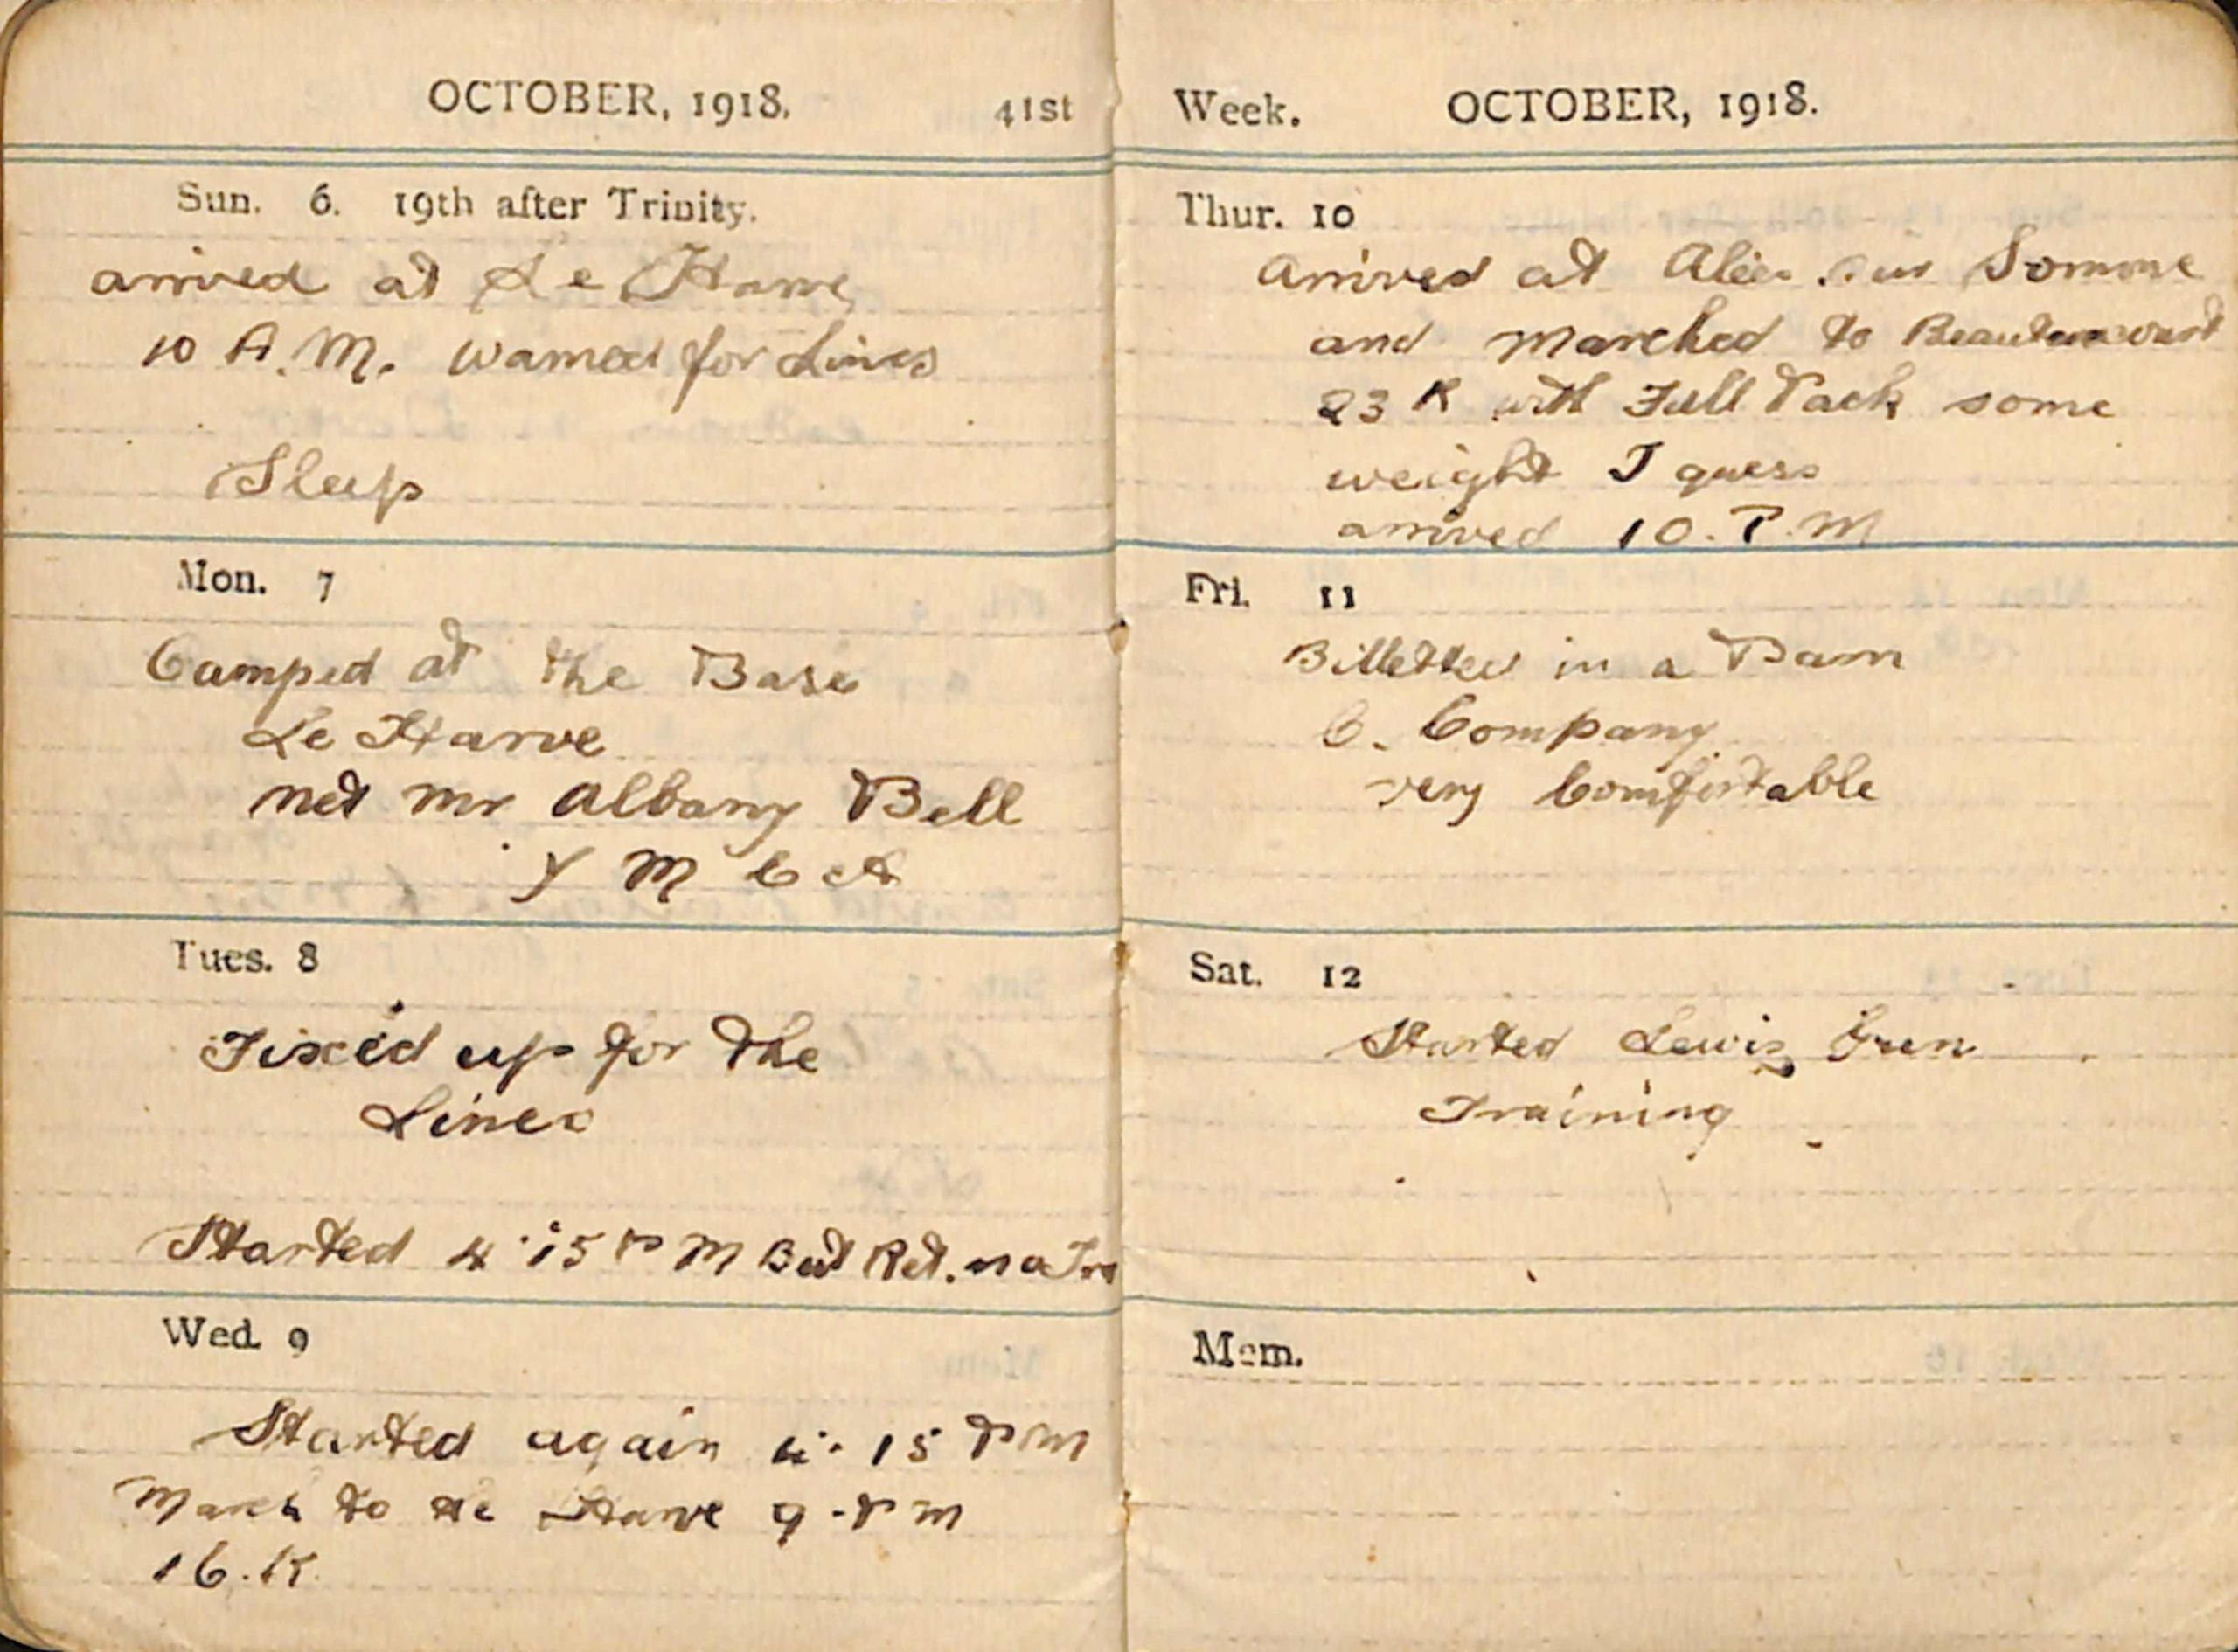 OCTOBER, 1918. 41st
Sun. 6. 19th after Trinity.
arrived at Le Harve
10 A.M. warned for Lines
Sleep
Mon. 7
Camped at the Base
Le Harve
met mr Albany Bell
Y M C A
Tues. 8
Fixed up for the
Lines
Started 4.15 P M But Ret. no Tra
Wed. 9
Started again 4.15 P m
March to Le Harve 9 - P m
16.K.
Week. OCTOBER, 1918.
Thur. 10
Arrived at sur Somme
and marched to
23 K with Full Pack some
weight I guess
arrived 10.P.M
Fri. 11
Billetted in a Barn
C. Company
very Comfortable
Sat. 12
Started Lewis Gun
Training
Mem.